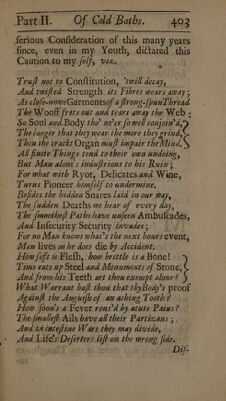 Part II. Of Cold Baths. 403
ſerious Conſideration of this many years
ſince, even in my Youth, dictated this
Caution to my ſelf, viz.
Truſt not to Conſtitution, 'twill decay,
And twiſted Strength its Fibres wears away;
As cloſe-wove Garments of a ſtrong-ſpun Thread
The Wooff frets out and tears away the Web:
So Soul and Body tho' ne'er ſo well conjoin'd,
The longer that they wear the more they grind,
Then the crackt Organ muſt impair the Mind.
All finite Things tend to their own undoing,
But Man alone's induſtrious to his Ruin;
For what with Ryot, Delicates and Wine,
Turns Pioneer himſelf to undermine.
Beſides the hidden Snares laid in our way,
The ſudden Deaths we hear of every day,
The ſmootheſt Paths have unſeen Ambuſcades,
And Inſecurity Security invades;
For no Man knows what's the next hours event,
Man lives as he does die by Accident.
How ſoft is Fleſh, how brittle is a Bone!
Time eats up Steel and Monuments of Stone,
And from his Teeth art thou exempt alone?
What Warrant haſt thou that thy Body's proof
Againſt the Anguiſh of an aching Tooth?
How ſoon's a Fever rous'd by acute Pains?
The ſmalleſt Ails have all their Partizans;
And in inteſtine Wars they may divide,
And Life's Deſerters liſt on the wrong ſide.
Diſ-